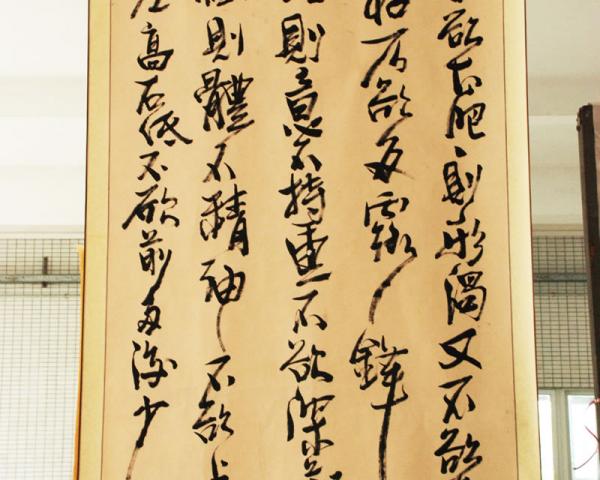 欲太肥〻則形濁又不欲
不欲多露鋒
則意不持重不欲深
則體不精神不欲上
高右低不欲前多後少